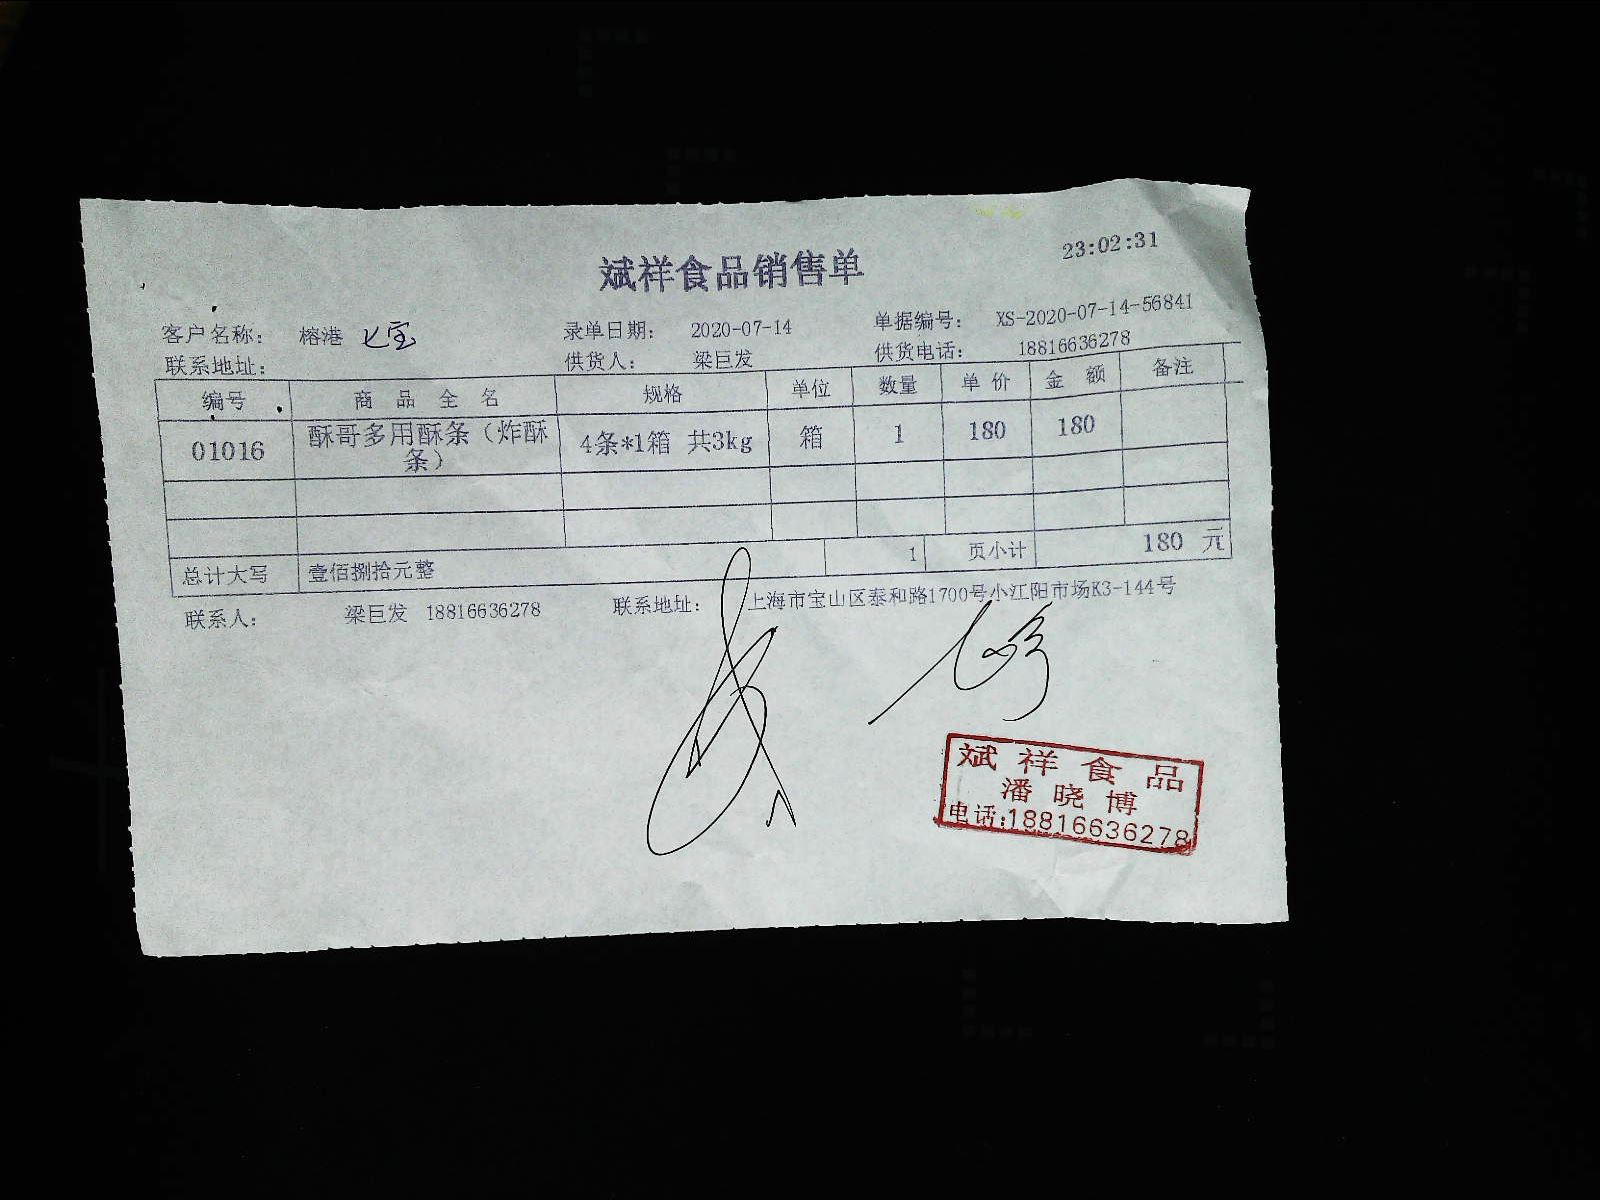 23:02:31
斌祥食品销售单
客户名称： 榕港 七宝 录单日期： 2020-07-14 单据编号： XS-2020-07-14-56841
联系地址： 供货人： 梁巨发 供货电话： 18816636278
编号 商品全名 规格 单位 数量 单价 金额 备注
01016 酥哥多用酥条（炸酥条） 4条*1箱 共3kg 箱 1 180 180
总计大写 壹佰捌拾元整 1 页小计 180 元
联系人： 梁巨发 18816636278 联系地址： 上海市宝山区泰和路1700号小江阳市场K3-144号
斌祥食品
潘晓博
电话:18816636278